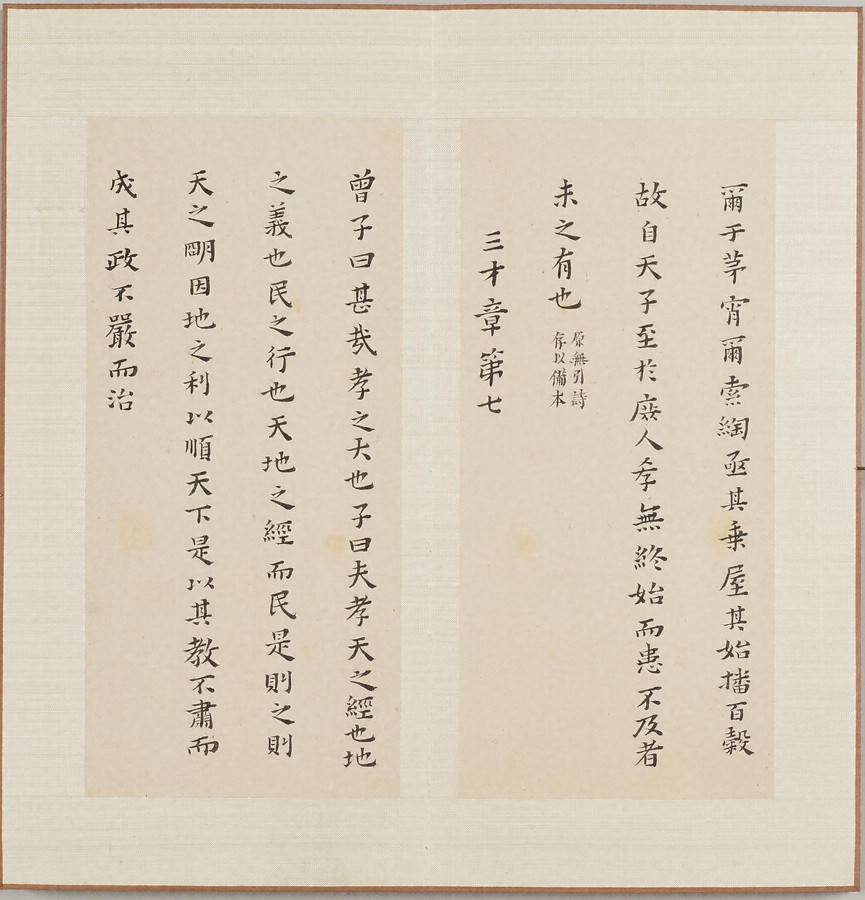 爾于茅宵爾索綯亟其乗屋其始播百穀
故自天子至於庶人孝無終始而患不及者
未之有也
原無引詩
存以備本
三才章第七
曾子曰甚哉孝之大也子曰夫孝天之經也地
之義也民之行也天地之經而民是則之則
天之明因地之利以順天下是以其教不肅而
成其政不嚴而治